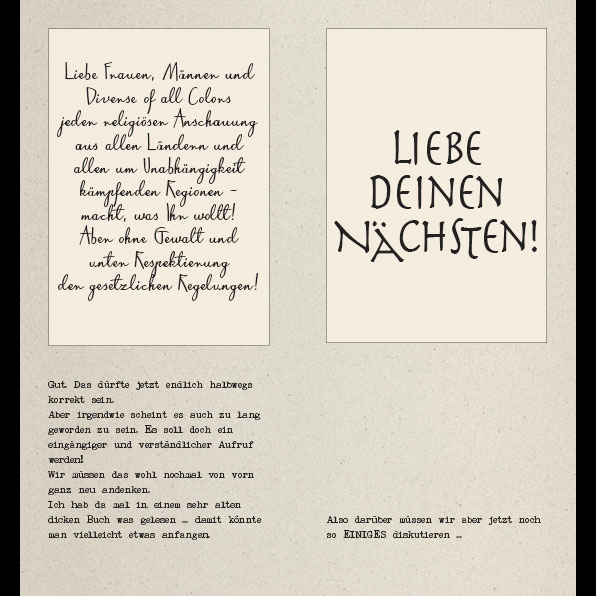 Liebe Frauen, Männer und
Diverse of all Colors
jeder religiösen Anschauung
aus allen Ländern und
allen um Unabhängigkeit
kämpfenden Regionen –
macht, was Ihr wollt!
Aber ohne Gewalt und
unter Respektierung
der gesetzlichen Regelungen!
Gut. Das dürfte jetzt endlich halbwegs
korrekt sein.
Aber irgendwie scheint es auch zu lang
geworden zu sein. Es soll doch ein
eingängiger und verständlicher Aufruf
werden!
Wir müssen das wohl nochmal von vorn
ganz neu andenken.
Ich hab da mal in einem sehr alten
dicken Buch was gelesen … damit könnte
man vielleicht etwas anfangen.
LIEBE
DEINEN
NÄCHSTEN!
Also darüber müssen wir aber jetzt noch
so EINIGES diskutieren …